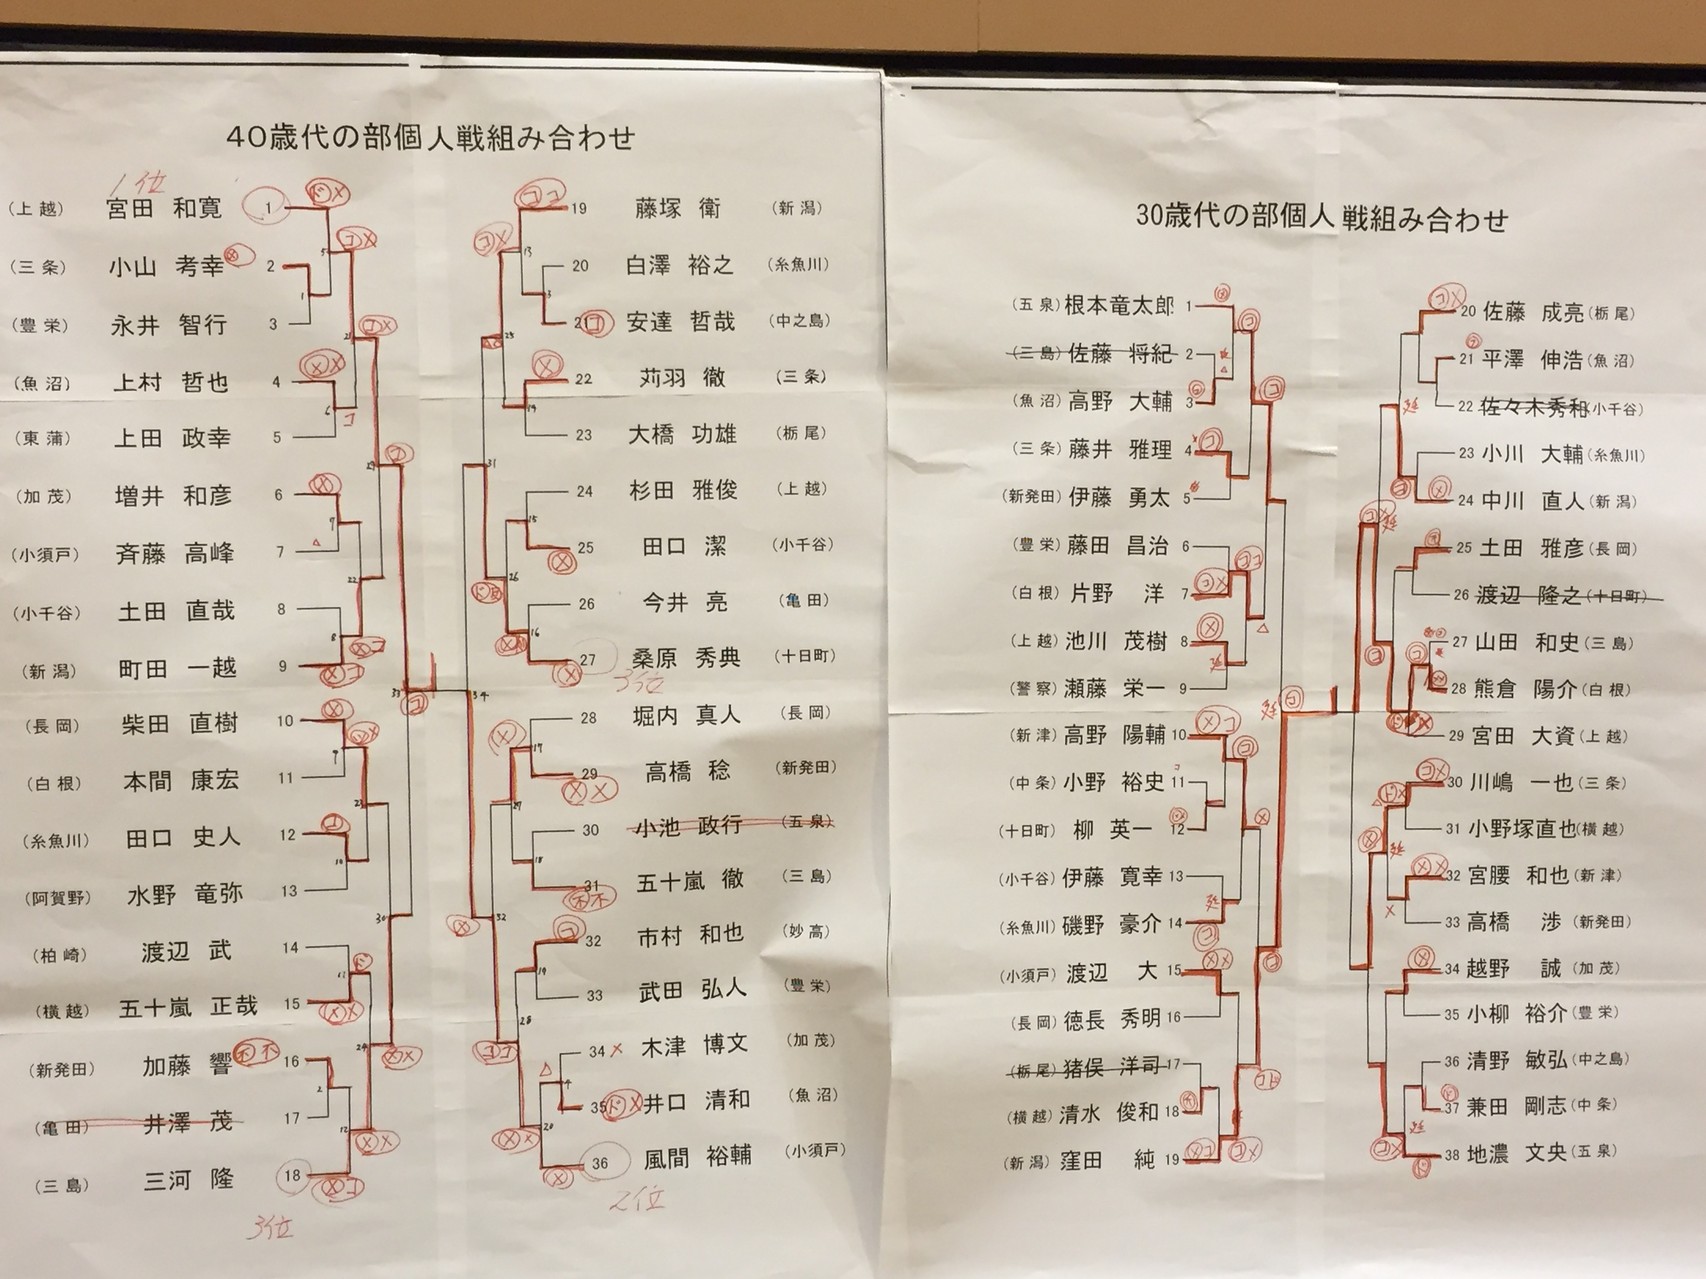 40歳代の部個人戦組み合わせ
1位
(上越) 宮田 和寛 1
(三条) 小山 考幸 2
(豊栄) 永井 智行 3
(魚沼) 上村 哲也 4
(東蒲) 上田 政幸 5
(加茂) 増井 和彦 6
(小須戸) 斉藤 高峰 7
(小千谷) 土田 直哉 8
(新潟) 町田 一越 9
(長岡) 柴田 直樹 10
(白根) 本間 康宏 11
(糸魚川) 田口 史人 12
(阿賀野) 水野 竜弥 13
(柏崎) 渡辺 武 14
(横越) 五十嵐 正哉 15
(新発田) 加藤 響 16
(亀田) 井澤 茂 17
(三島) 三河 隆 18
3位
19 藤塚 衛 (新潟)
20 白澤 裕之 (糸魚川)
21 安達 哲哉 (中之島)
22 苅羽 徹 (三条)
23 大橋 功雄 (栃尾)
24 杉田 雅俊 (上越)
25 田口 潔 (小千谷)
26 今井 亮 (亀田)
27 桑原 秀典 (十日町)
3位
28 堀内 真人 (長岡)
29 高橋 稔 (新発田)
30 小池 政行 (五泉)
31 五十嵐 徹 (三島)
32 市村 和也 (妙高)
33 武田 弘人 (豊栄)
34 木津 博文 (加茂)
35 井口 清和 (魚沼)
36 風間 裕輔 (小須戸)
2位
30歳代の部個人戦組み合わせ
(五泉) 根本竜太郎 1
(三島) 佐藤 将紀 2
(魚沼) 高野 大輔 3
(三条) 藤井 雅理 4
(新発田) 伊藤 勇太 5
(豊栄) 藤田 昌治 6
(白根) 片野 洋 7
(上越) 池川 茂樹 8
(警察) 瀬藤 栄一 9
(新津) 高野 陽輔 10
(中条) 小野 裕史 11
(十日町) 柳 英一 12
(小千谷) 伊藤 寛幸 13
(糸魚川) 磯野 豪介 14
(小須戸) 渡辺 大 15
(長岡) 徳長 秀明 16
(栃尾) 猪俣 洋司 17
(横越) 清水 俊和 18
(新潟) 窪田 純 19
20 佐藤 成亮 (栃尾)
21 平澤 伸浩 (魚沼)
22 佐々木秀和 (小千谷)
23 小川 大輔 (糸魚川)
24 中川 直人 (新潟)
25 土田 雅彦 (長岡)
26 渡辺 隆之 (十日町)
27 山田 和史 (三島)
28 熊倉 陽介 (白根)
29 宮田 大資 (上越)
30 川嶋 一也 (三条)
31 小野塚直也 (横越)
32 宮腰 和也 (新津)
33 高橋 渉 (新発田)
34 越野 誠 (加茂)
35 小柳 裕介 (豊栄)
36 清野 敏弘 (中之島)
37 兼田 剛志 (中条)
38 地濃 文央 (五泉)